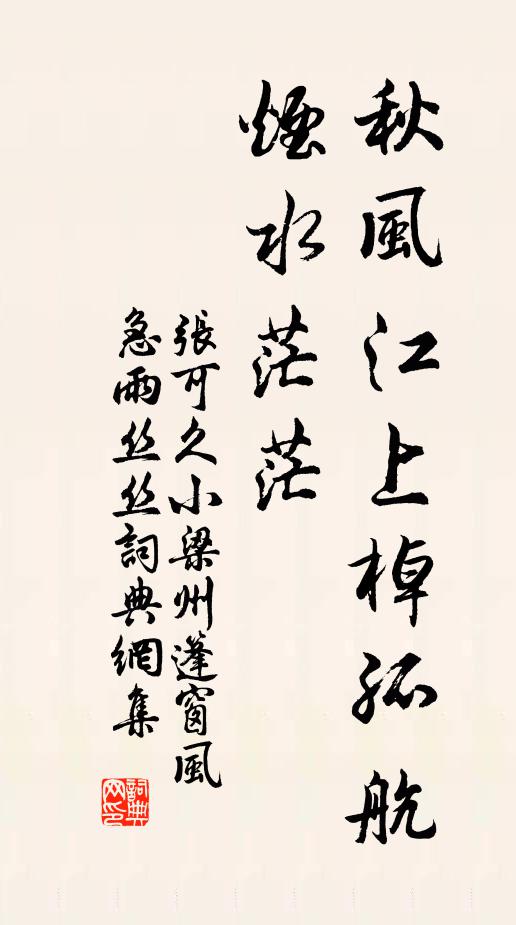 秋風江上棹孤航
煙水茫茫
張可久小梁州篷窗風
急雨丝丝詞典網集
詞典
网印